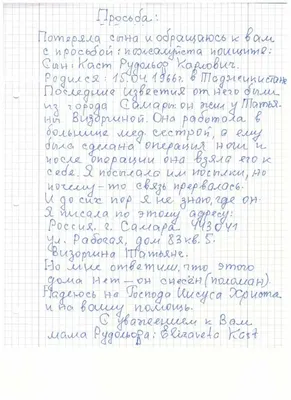 Просьба:
Потеряла сына и обращаюсь к вам
с просьбой: пожалуйста поищите:
Сын: Каст Рудольф Карлович.
Родился: 15.04 1966г. в Таджикистане
Последние известия от него были
из города Самары он жил у Татья-
ны Визоргиной. Она работала в
больнице мед. сестрой, а ему
была сделана операция ноги и
после операции она взяла его к
себе. Я посылала им посылки, но
почему-то связь прервалась.
И до сих пор я не знаю, где он.
Я писала по этому адресу:
Россия. г. Самара 443041
ул. Рабочая, дом 83 кв. 5.
Визоргина Татьяне.
Но мне ответили, что этого
дома нет - он снесён (поломан).
Надеюсь на Господа Иисуса Христа
и на вашу помощь.
С уважением к Вам
мама Рудольфа: Elizaveta Kast